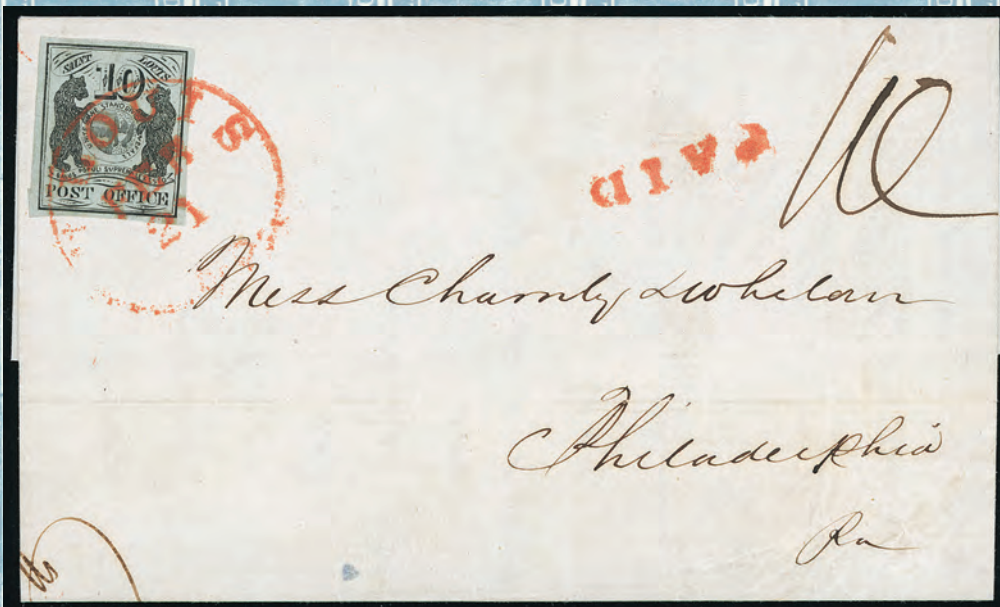 SAINT LOUIS
10
POST OFFICE
LOUIS
PAID
10
Mess Charnly & Whelan
Philadelphia
Pa